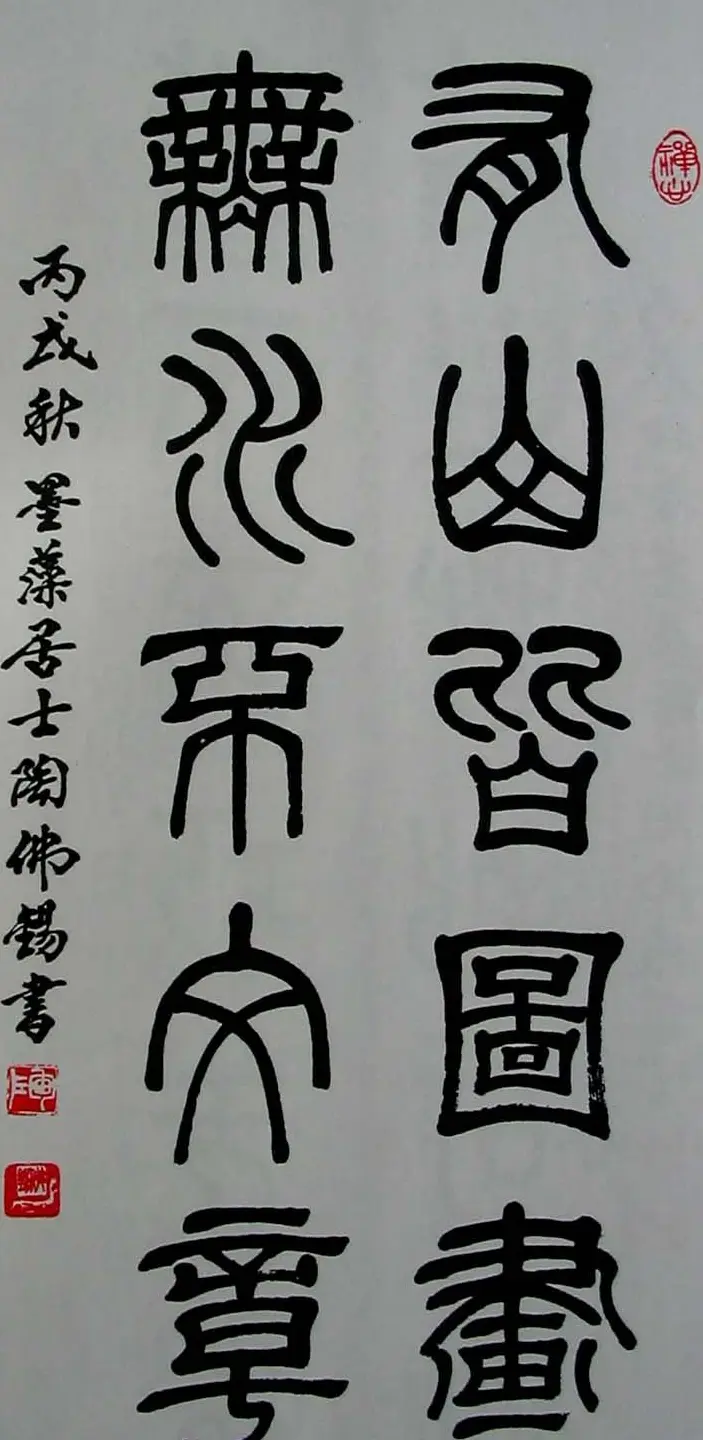 有山皆圖畫
無水不文章
丙戌秋 墨藻居士陶佛錫書